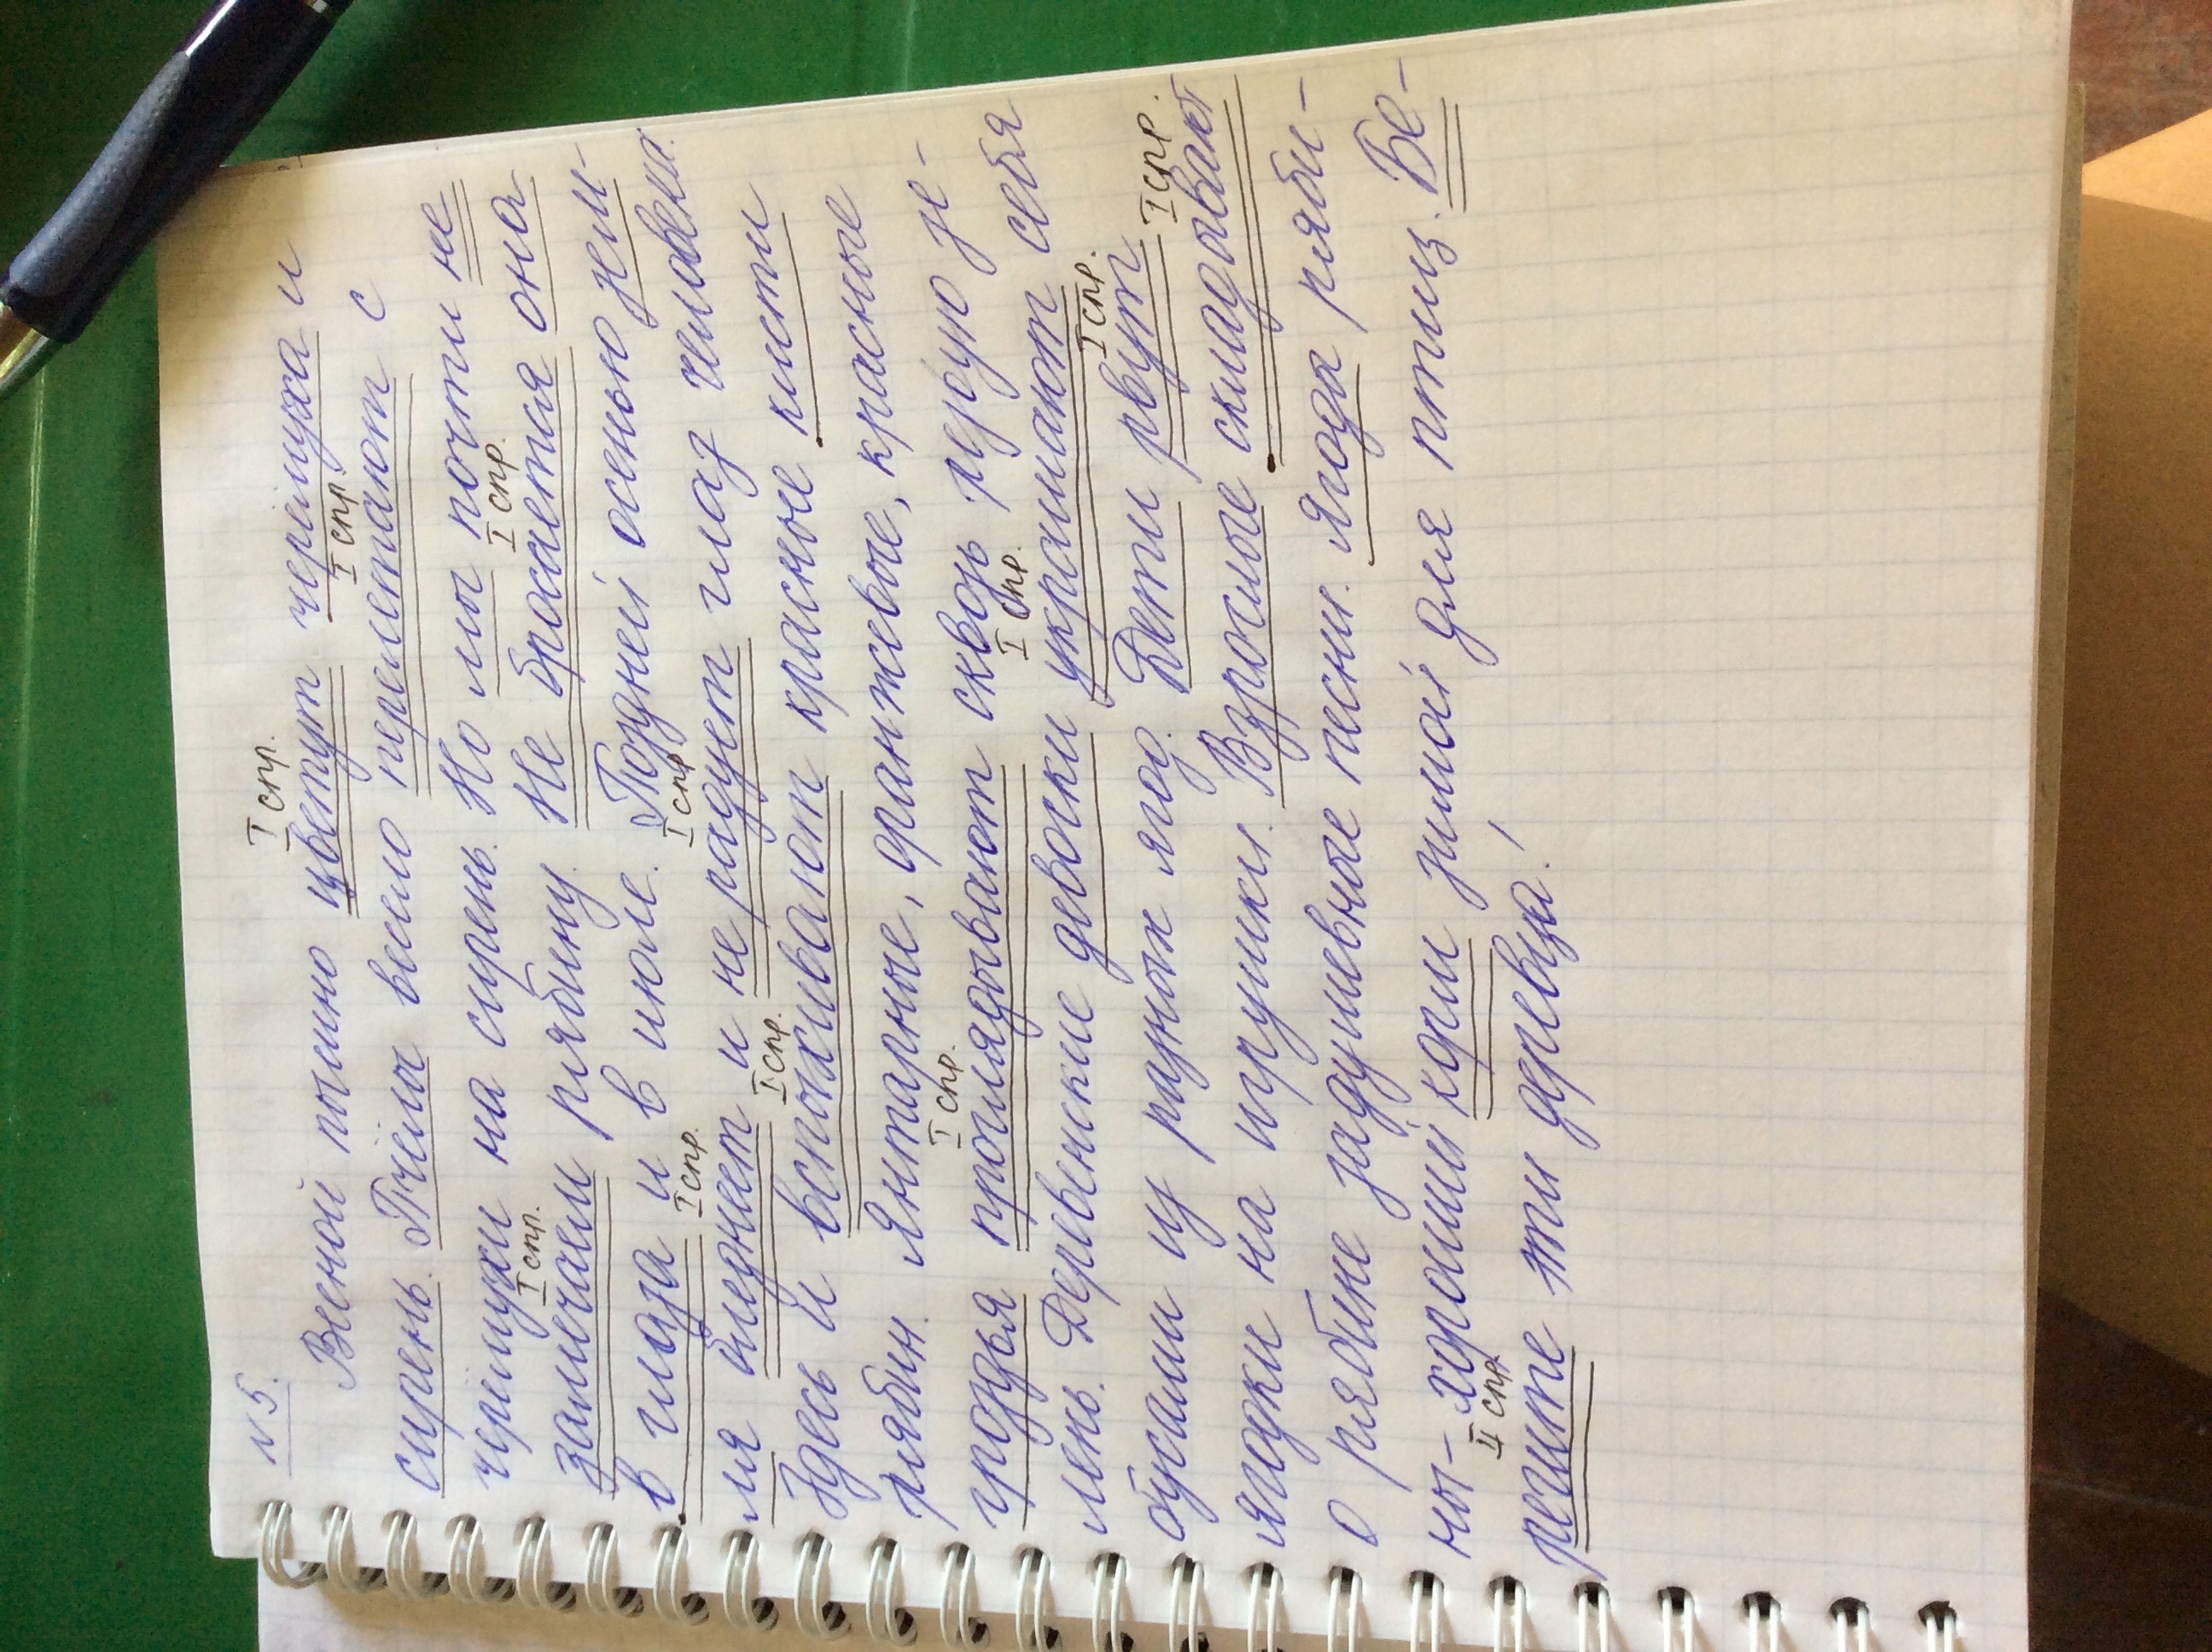 №5.
I спр.
Весной пышно цветут черёмуха и
I спр.
сирень. Пчёлы весело перелетают с
черёмухи на сирень. Но мы почти не
I спр. I спр.
замечаем рябину. Не бросается она
в глаза и в июле. Поздней осенью зем-
I спр. I спр.
ля бледнеет и не радует глаз человека.
I спр.
Здесь и вспыхивают красные кисти
рябин. Янтарные, оранжевые, красные
I спр.
грозья проглядывают сквозь редкую зе-
I спр.
лень. Деревенские девочки украшают себя
I спр.
бусами из разных ягод. Дети рвут
I спр.
ягодки на игрушки. Взрослые складывают
о рябине задушевные песни. Ягода ряби-
ны - хороший корм зимой для птиц. Бе-
II спр.
регите эти деревца!